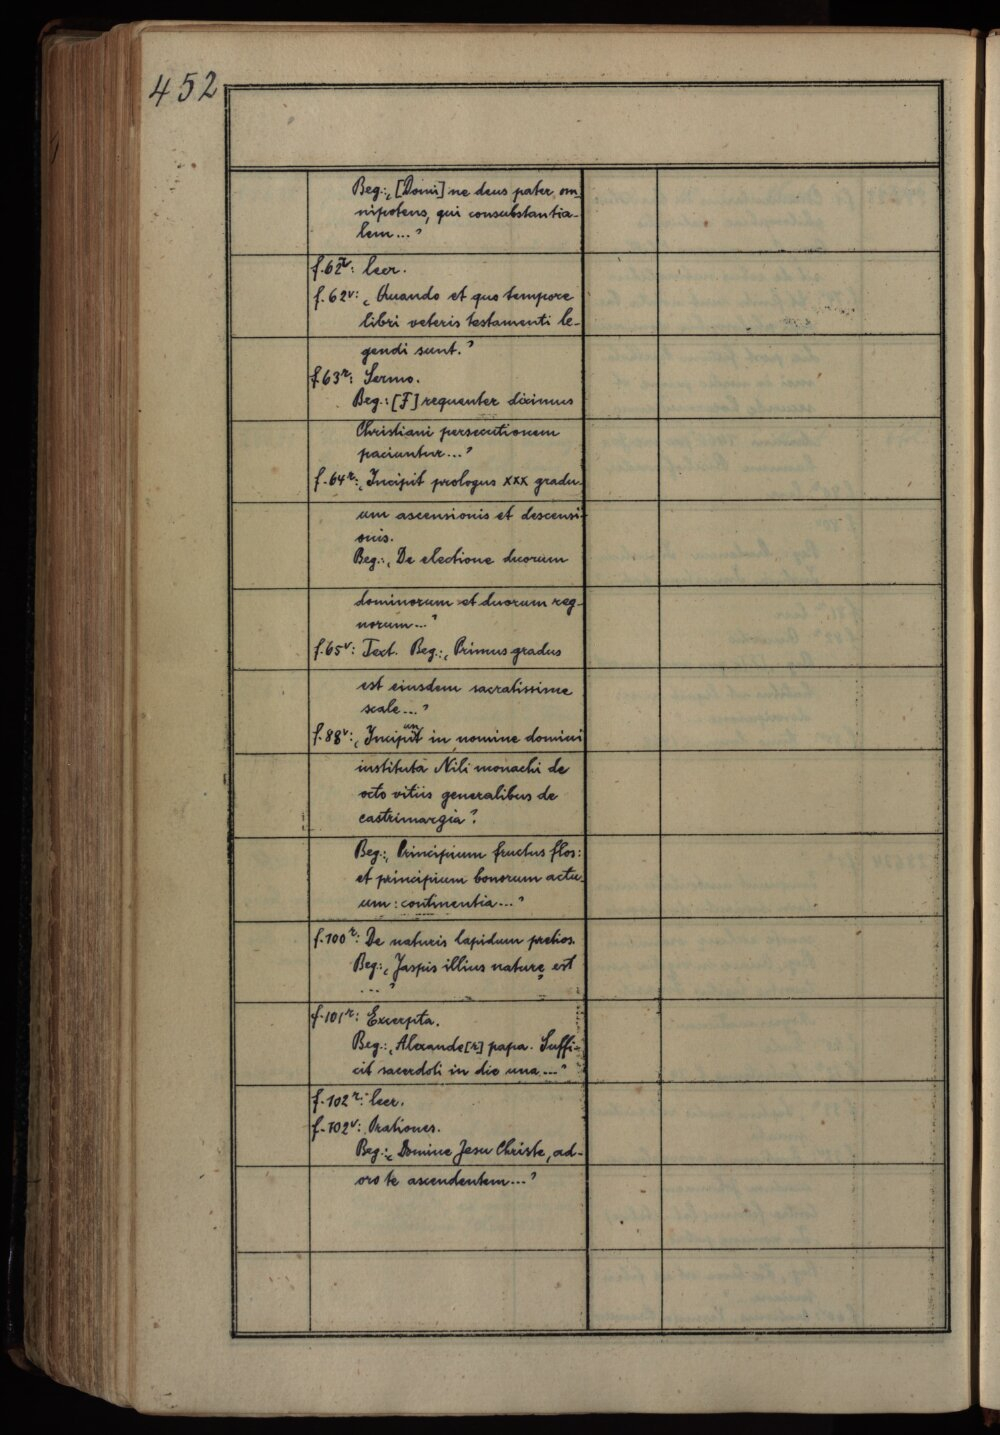 452
Beg.: „[Domi]ne deus pater om-
nipotens, qui consubstantia-
lem..."
f.62r: leer.
f.62v: „Quando et quo tempore
libri veteris testamenti le-
gendi sunt."
f.63r: Sermo.
Beg.: [F]requenter diximus
Christiani persecutionem
paciuntur..."
f.64r: „Incipit prologus xxx gradu-
um ascensionis et descensi-
onis.
Beg.: „De electione duorum
dominorum et duorum reg-
norum..."
f.65v: Text. Beg.: „Primus gradus
est eiusdem sacratissime
scale..."
f.88v: „Incipiunt in nomine domini
instituta Nili monachi de
octo vitiis generalibus de
castrimargia".
Beg.: „Principium fructus flos:
et principium bonorum actu-
um: continentia..."
f.100r: De naturis lapidum pretios.
Beg.: „Jaspis illius nature est
..."
f.101r: Excerpta.
Beg.: „Alexande[r] papa. Suffi-
cit sacerdoti in die una..."
f.102r: leer.
f.102v: Orationes.
Beg.: „Domine Jesu Christe, ad-
oro te ascendentem..."